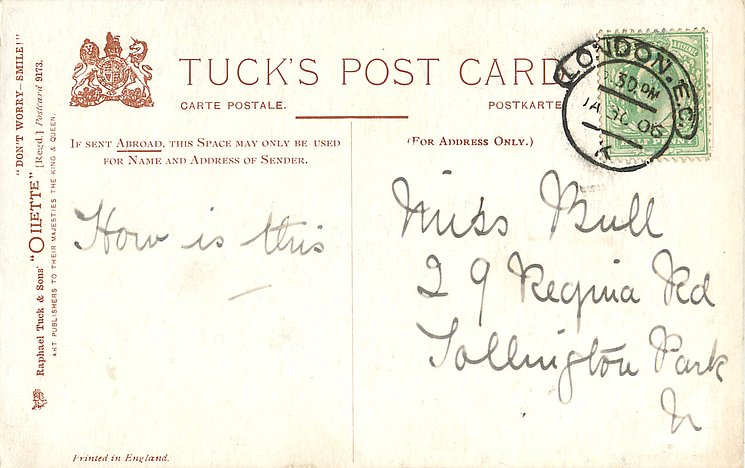 TUCK'S POST CARD
CARTE POSTALE.
POSTKARTE
IF SENT ABROAD, THIS SPACE MAY ONLY BE USED
FOR NAME AND ADDRESS OF SENDER.
(FOR ADDRESS ONLY.)
LONDON.E.C
.30 PM
JA 30 06
K
HALF PENNY
How is this
Miss Bull
29 Regina Rd
Tollington Park
N
"DON'T WORRY—SMILE!"
Raphael Tuck & Sons' "OILETTE" [Regd.] Postcard 9173.
ART PUBLISHERS TO THEIR MAJESTIES THE KING & QUEEN.
Printed in England.